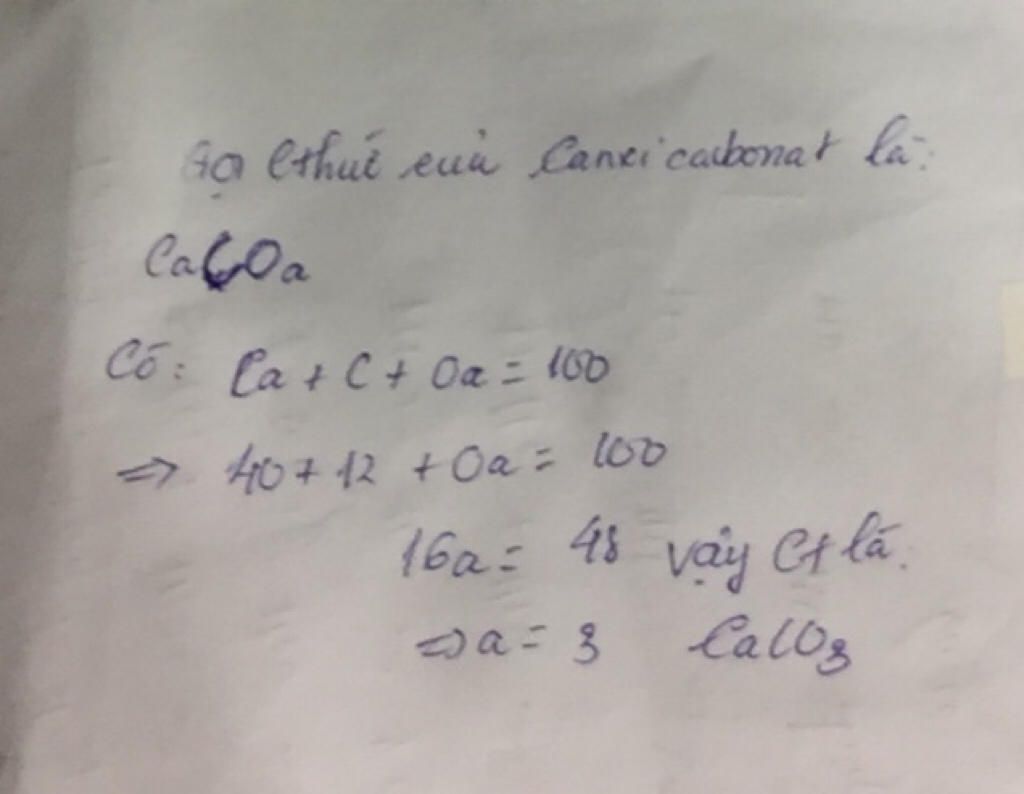 Gọi Cthức của Canxi cacbonat là:
CaCOa
Có: Ca + C + Oa = 100
=> 40 + 12 + Oa = 100
16a = 48 vậy Ct là:
=> a = 3 CaCO3